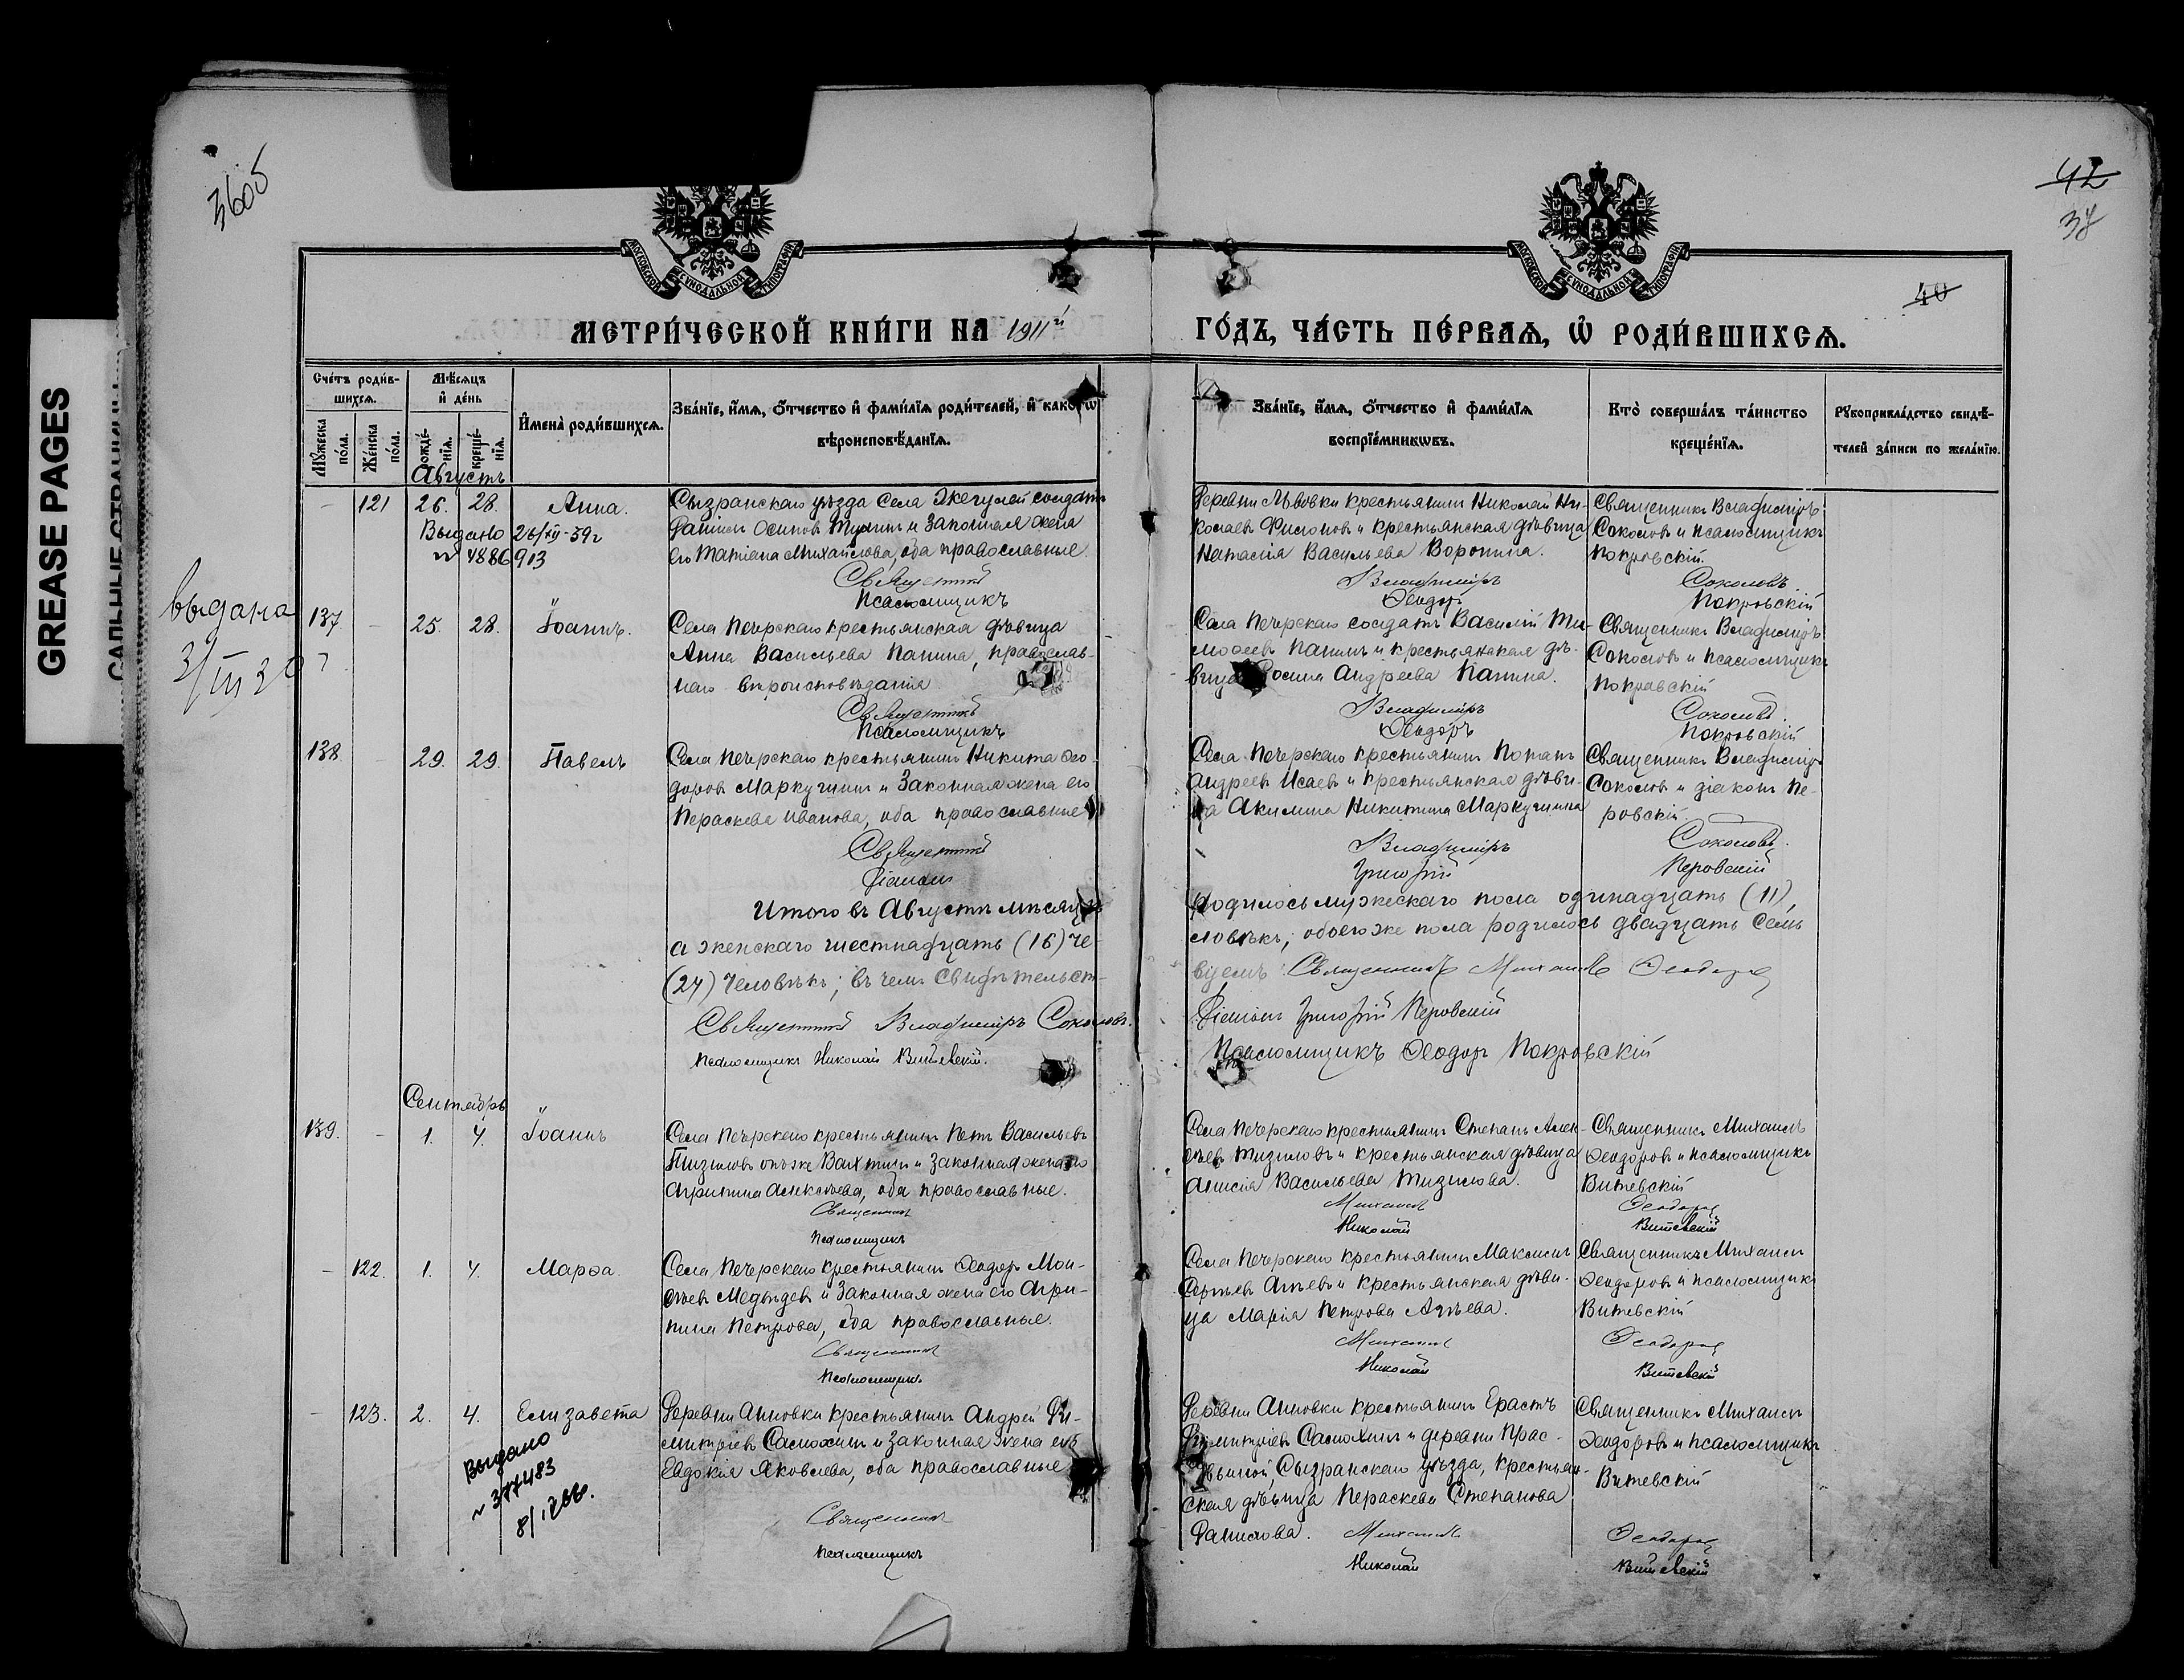 GREASE PAGES
3605
42
37
40
МОСКОВСКОЙ СѴНОДАЛЬНОЙ ТИПОГРАФІИ
МОСКОВСКОЙ СѴНОДАЛЬНОЙ ТИПОГРАФІИ
МЕТРИ́ЧЕСКОЙ КНИ́ГИ НА 1911й ГО́ДЪ, ЧА́СТЬ ПЕ́РВАѦ, Ѡ҆ РОДИ́ВШИХСѦ.
Сче́тъ роди́в-
шихсѧ.
Мꙋ́жеска по́ла.
Же́нска по́ла.
Мѣ́сѧцъ
и҆ де́нь
рожде́-
нїѧ.
креще́-
нїѧ.
И҆мена̀ роди́вшихсѧ.
Зва́нїе, и҆́мѧ, ѻ҆́тчество и҆ фами́лїѧ роди́телей, и҆ како́гѡ
вѣроисповѣ́данїѧ.
Зва́нїе, и҆́мѧ, ѻ҆́тчество и҆ фами́лїѧ
воспрїе́мникѡвъ.
Кто̀ соверша́лъ та́инство
креще́нїѧ.
Рꙋкоприкла́дство свидѣ́-
телей за́писи по жела́нїю.
Августъ
- 121 26. 28. Анна.
Выдано 26/XII-59г
№ 4886913
Сызранскаго уѣзда Села Жегулей солдатъ
Даніилъ Осиповъ и Законная жена
его Татіана Михайлова, оба православные
Священникъ
Псаломщикъ
Деревни Львовки крестьянинъ Николай Ни-
колаевъ и крестьянская дѣвица
Наталія Васильева Воронина.
Владиміръ
Ѳеодоръ
Священникъ Владиміръ
Соколовъ и псаломщикъ
Покровскій.
Соколовъ.
Покровскій
выдана
137 - 25. 28. Іоаннъ.
Села Печерскаго крестьянская дѣвица
Анна Васильева Панина, православ-
наго вѣроисповѣданія
Священникъ
Псаломщикъ
Села Печерскаго солдатъ Василій Ти-
моѳеевъ Панинъ и крестьянская дѣ-
вица Андреева Панина.
Владиміръ
Ѳеодоръ
Священникъ Владиміръ
Соколовъ и псаломщикъ
Покровскій
Соколовъ.
Покровскій
138 29. 29. Павелъ
Села Печерскаго крестьянинъ Никита Ѳео-
доровъ Маркушинъ и Законная жена его
Параскева Иванова, оба православные
Священникъ
Діаконъ
Села Печерскаго крестьянинъ Потапъ
Андреевъ Исаевъ и крестьянская дѣви-
ца Акилина Никитина Маркушина
Владиміръ
Григорій
Священникъ Владиміръ
Соколовъ и діаконъ Пе-
ровскій.
Соколовъ.
Перовскій
Итого въ Августѣ мѣсяцѣ родилось мужескаго пола одинадцать (11),
а женскаго шестнадцать (16) че-ловѣкъ; обоего же пола родилось двадцать семь
(27) человѣкъ; въ чемъ свидѣтельст-вуемъ: Священникъ Михаилъ Ѳеодоровъ
Священникъ Владиміръ Соколовъ. Діаконъ Григорій Перовскій
Псаломщикъ Николай Витевскій. Псаломщикъ Ѳеодоръ Покровскій
Сентябрь
139. - 1. 4. Іоаннъ
Села Печерскаго крестьянинъ Петръ Васильевъ
Тизиловъ онъ же Вахтинъ и Законная жена его
Агрипина Алексѣева, оба православные.
Священникъ
Псаломщикъ
Села Печерскаго крестьянинъ Степанъ Алек-
сѣевъ Тизиловъ и крестьянская дѣвица
Анисія Васильева Тизилова.
Михаилъ
Николай
Священникъ Михаилъ
Ѳеодоровъ и псаломщикъ
Витевскій
Ѳеодоровъ
Витевскій
- 122. 1. 4. Марѳа.
Села Печерскаго крестьянинъ Ѳеодоръ Мои-
сѣевъ Медвѣдевъ и Законная жена его Агри-
пина Петрова, оба православные.
Священникъ
Псаломщикъ.
Села Печерскаго крестьянинъ Максимъ
Сергѣевъ Агѣевъ и крестьянская дѣви-
ца Марія Петрова Агѣева.
Михаилъ
Николай
Священникъ Михаилъ
Ѳеодоровъ и псаломщикъ
Витевскій
Ѳеодоровъ
Витевскій
- 123. 2. 4. Елизавета
Выдано
№ 377483
Деревни Анновки крестьянинъ Андрей Ди-
митріевъ Самохинъ и Законная жена его
Евдокія Яковлева, оба православные
Священникъ
Псаломщикъ
Деревни Анновки крестьянинъ Ерастъ
Димитріевъ Самохинъ и деревни
Сызранскаго уѣзда, крестьян-
ская дѣвица Параскева Степанова
Данилова. Михаилъ
Николай
Священникъ Михаилъ
Ѳеодоровъ и псаломщикъ
Витевскій
Ѳеодоровъ
Витевскій